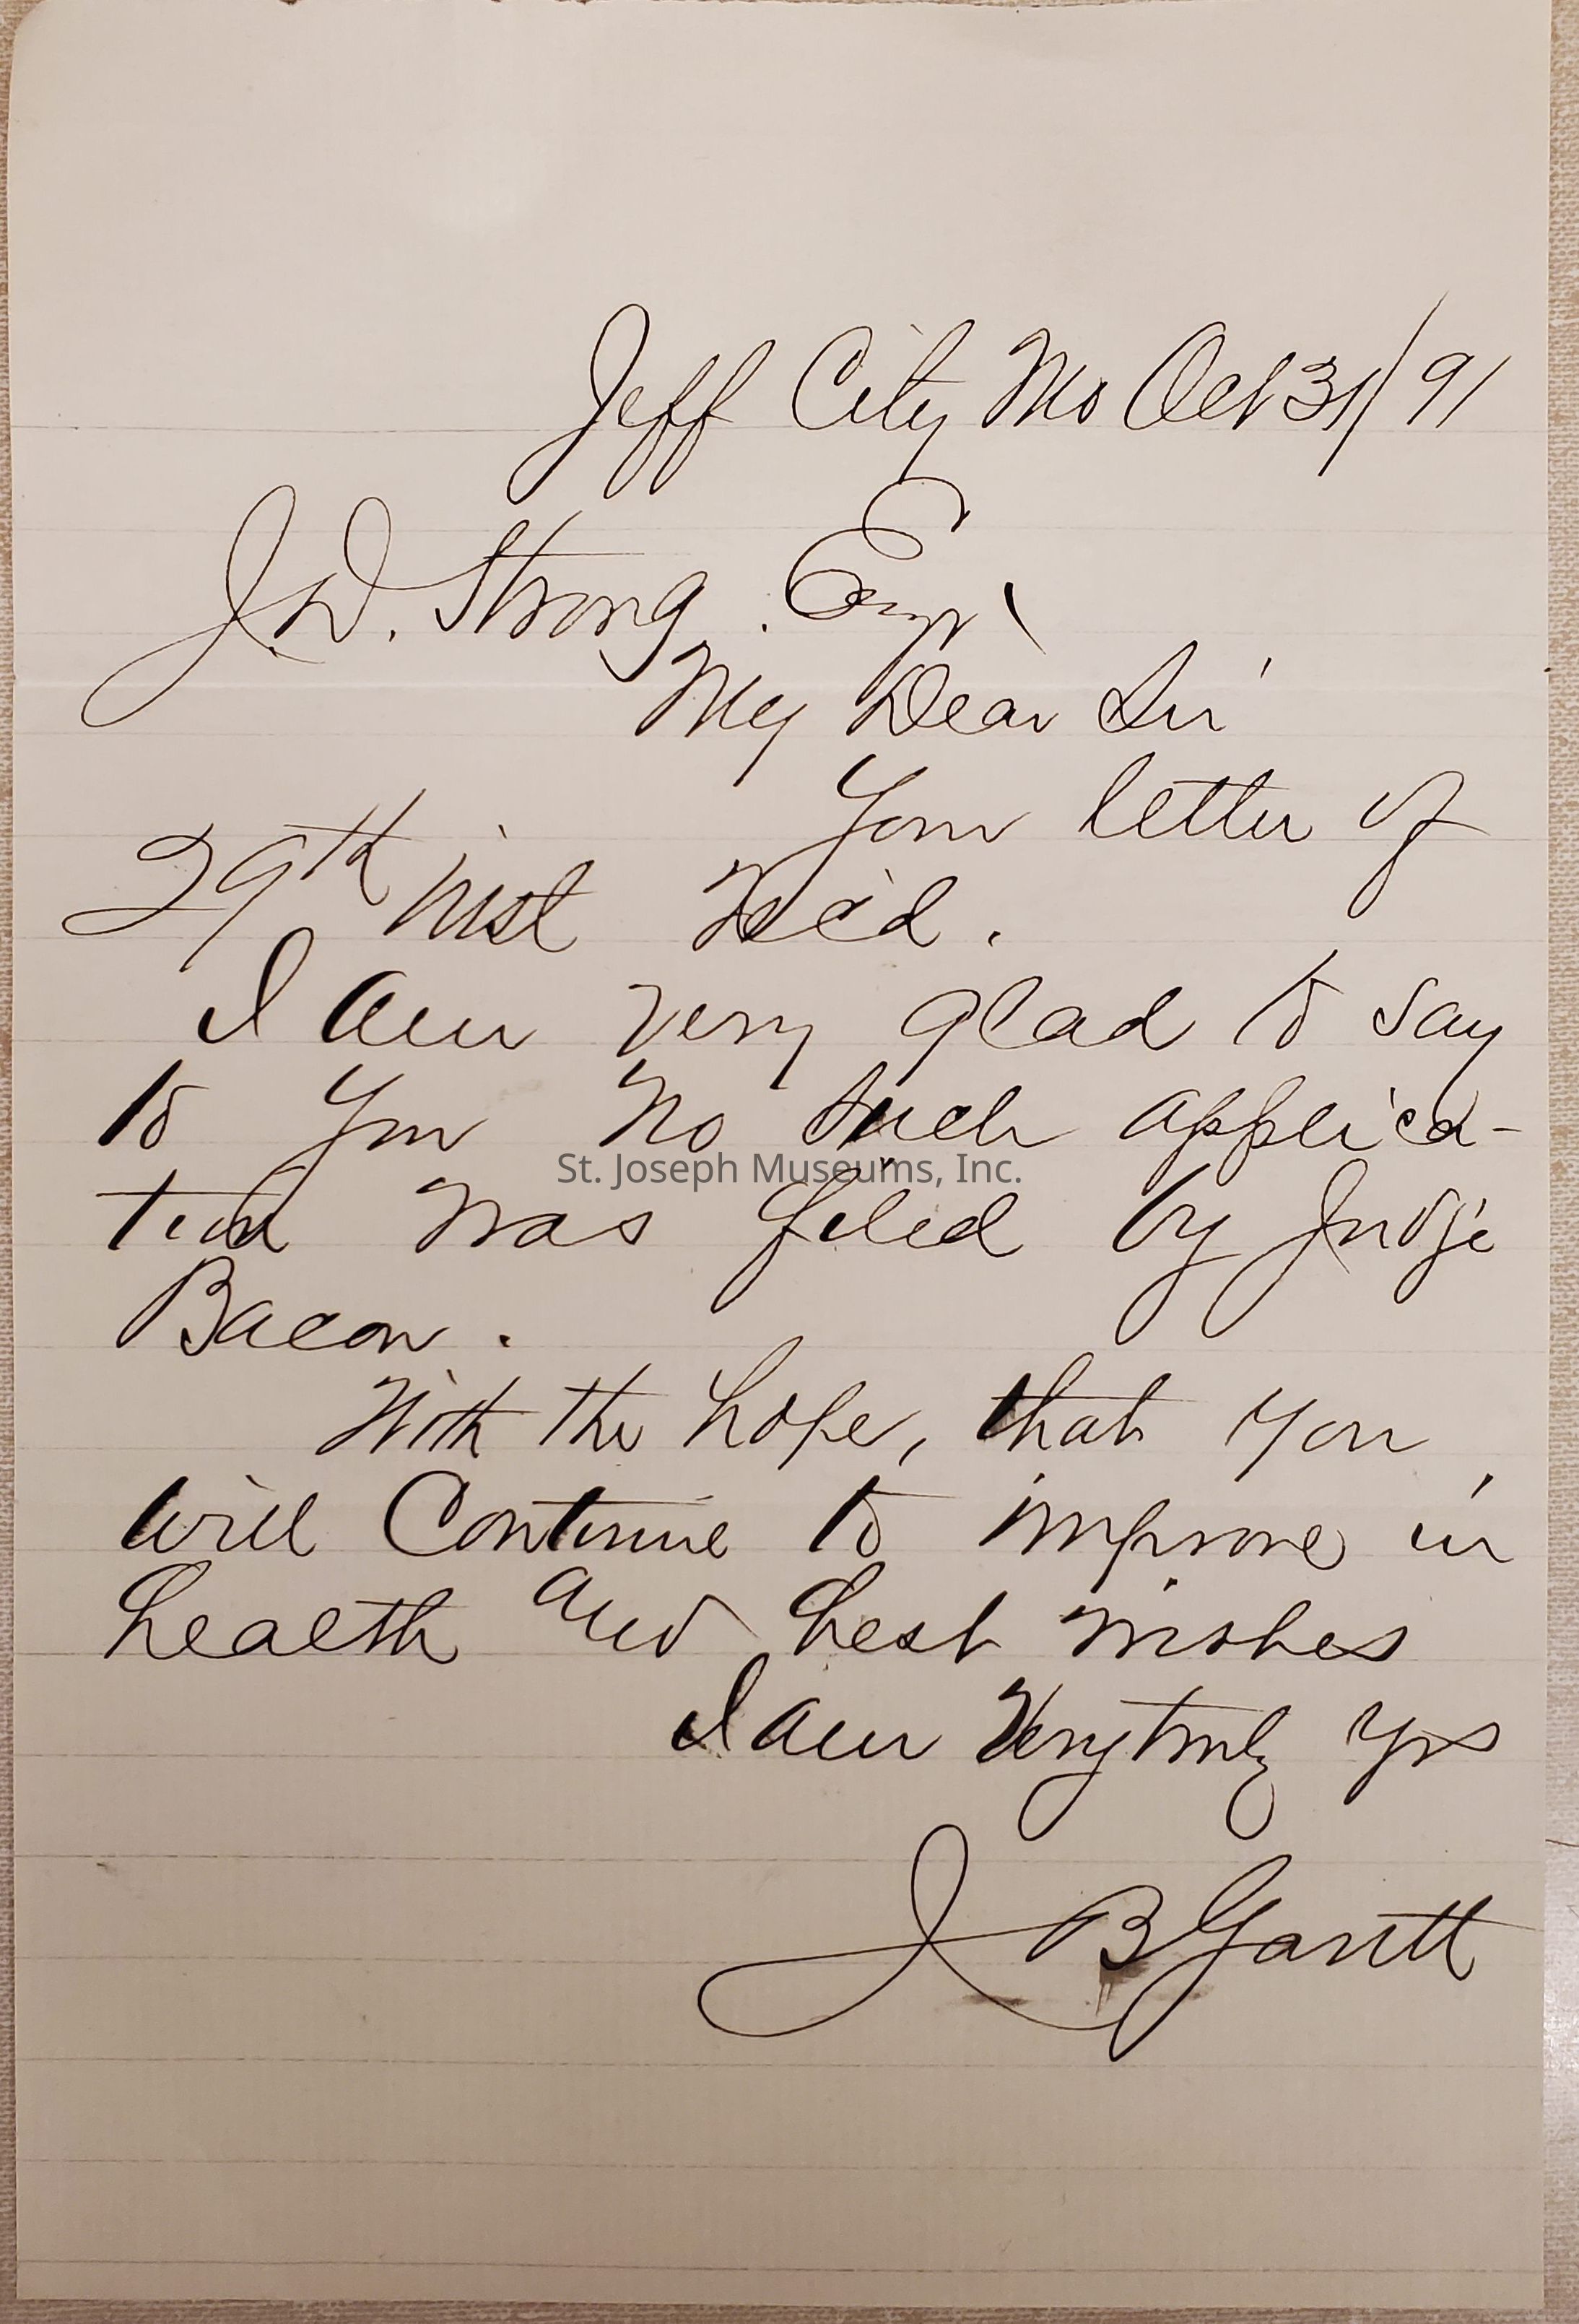 Jeff City Mo Oct 31/91
J.W. Strong. Esqr
My Dear Sir
Your letter of
29th inst Rec'd.
I am very glad to say
to you no such applica-
tion was filed by Judge
Bacon.
With the hope, that you
will Continue to improve in
health and best wishes
I am Very truly yrs
J B Gantt
St. Joseph Museums, Inc.